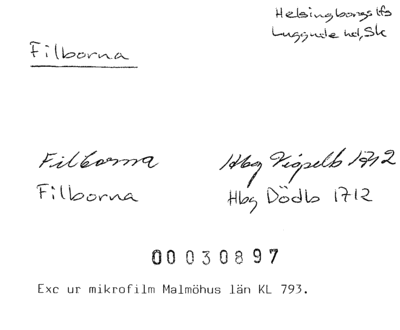 Helsingborgs lfs
Luggude hd, Sk
Filborna
Filborna Hbg Vigselb 1712
Filborna Hbg Dödb 1712
00030897
Exc ur mikrofilm Malmöhus län KL 793.